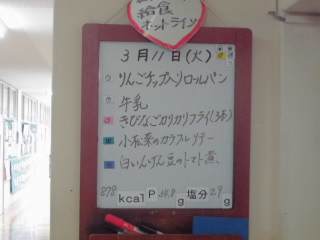 給食
ホットライン
3月11日(火)
りんごチップ入りロールパン
牛乳
きびなごカリカリフライ(3本)
小松菜のカラフルソテー
白いんげん豆のトマト煮
878 kcal P g 塩分 2.9 g